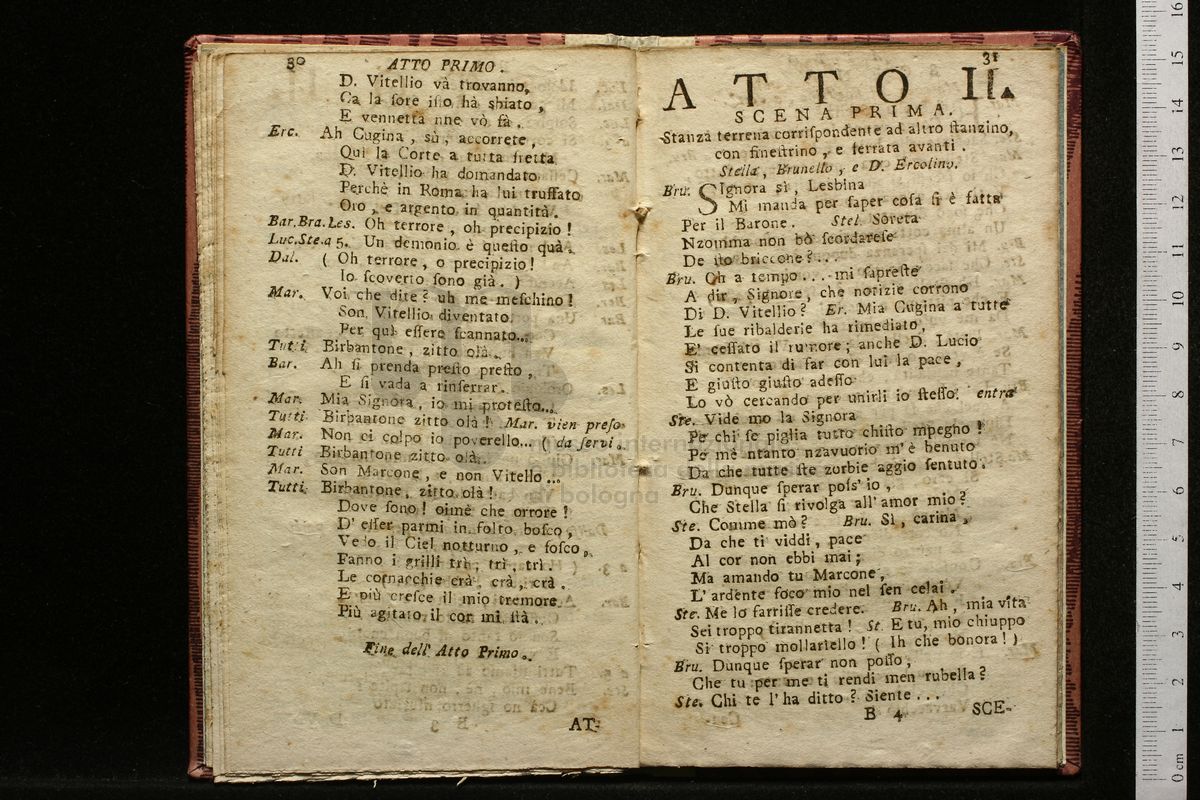 30 ATTO PRIMO.
D. Vitellio và trovanno,
Ca la sore isso hà sbiato,
E vennetta nne vò fà.
Erc. Ah Cugina, sù, accorrete,
Qui la Corte a tutta fretta
D. Vitellio ha domandato
Perchè in Roma ha lui truffato
Oro, e argento in quantità.
Bar.Bra.Les. Oh terrore, oh precipizio!
Luc.Ste.a 5. Un demonio è questo quà.
Dal. (Oh terrore, o precipizio!
Io scoverto sono già.)
Mar. Voi che dite? uh me meschino!
Son Vitellio diventato,
Per quì essere scannato...
Tutti Birbantone, zitto olà.
Bar. Ah si prenda presto presto,
E si vada a rinserrar.
Mar. Mia Signora, io mi protesto...
Tutti Birbantone zitto olà! Mar. vien preso
Mar. Non ci colpo io poverello... (da servi.
Tutti Birbantone zitto olà.
Mar. Son Marcone, e non Vitello...
Tutti Birbantone, zitto olà!
Dove sono! oimè che orrore!
D' esser parmi in folto bosco,
Vedo il Ciel notturno, e fosco,
Fanno i grilli trì, trì, trì.
Le cornacchie crà, crà, crà.
E più cresce il mio tremore
Più agitato il cor mi stà.
Fine dell' Atto Primo.
AT-
31
ATTO II.
SCENA PRIMA.
Stanza terrena corrispondente ad altro stanzino,
con finestrino, e ferrata avanti.
Stella, Brunello, e D. Ercolino.
Bru. Signora sì, Lesbina
Mi manda per saper cosa si è fatta
Per il Barone. Stel. Soreta
Nzomma non bò scordarese
De sto briccone?...
Bru. Oh a tempo.... mi sapreste
A dir, Signore, che notizie corrono
Di D. Vitellio? Er. Mia Cugina a tutte
Le sue ribalderie ha rimediato,
E' cessato il rumore; anche D. Lucio
Si contenta di far con lui la pace,
E giusto giusto adesso
Lo vò cercando per unirli io stesso. entra
Ste. Vide mo la Signora
Pe chi se piglia tutto chisto mpegno!
Pe mè ntanto nzavuorio m' è benuto
Da che tutte ste zorbie aggio sentuto.
Bru. Dunque sperar poss' io,
Che Stella si rivolga all' amor mio?
Ste. Comme mò? Bru. Sì, carina,
Da che ti viddi, pace
Al cor non ebbi mai;
Ma amando tu Marcone,
L' ardente foco mio nel sen celai.
Ste. Me lo farrisse credere. Bru. Ah, mia vita
Sei troppo tirannetta! St. E tu, mio chiuppo
Si troppo mollariello! (Ih che bonora!)
Bru. Dunque sperar non posso,
Che tu per me ti rendi men rubella?
Ste. Chi te l' ha ditto? Siente...
B 4 SCE-